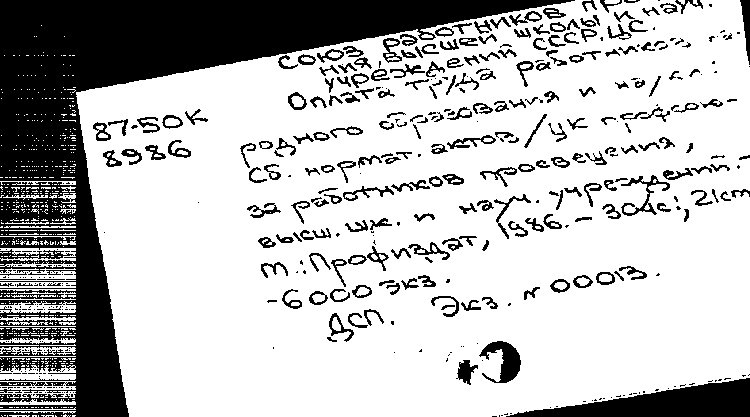 Союз работников прос
ния, высшей школы и науч.
учреждений СССР. ЦС.
Оплата труда работников на-
87-50К
родного образования и науки:
8986
Сб. нормат. актов/ЦК профсою-
за работников просвещения,
высш. шк. и науч. учреждений.-
М.: Профиздат, 1986.- 304с.; 21cm
-6000 экз.
ДСП. Экз. № 00013.